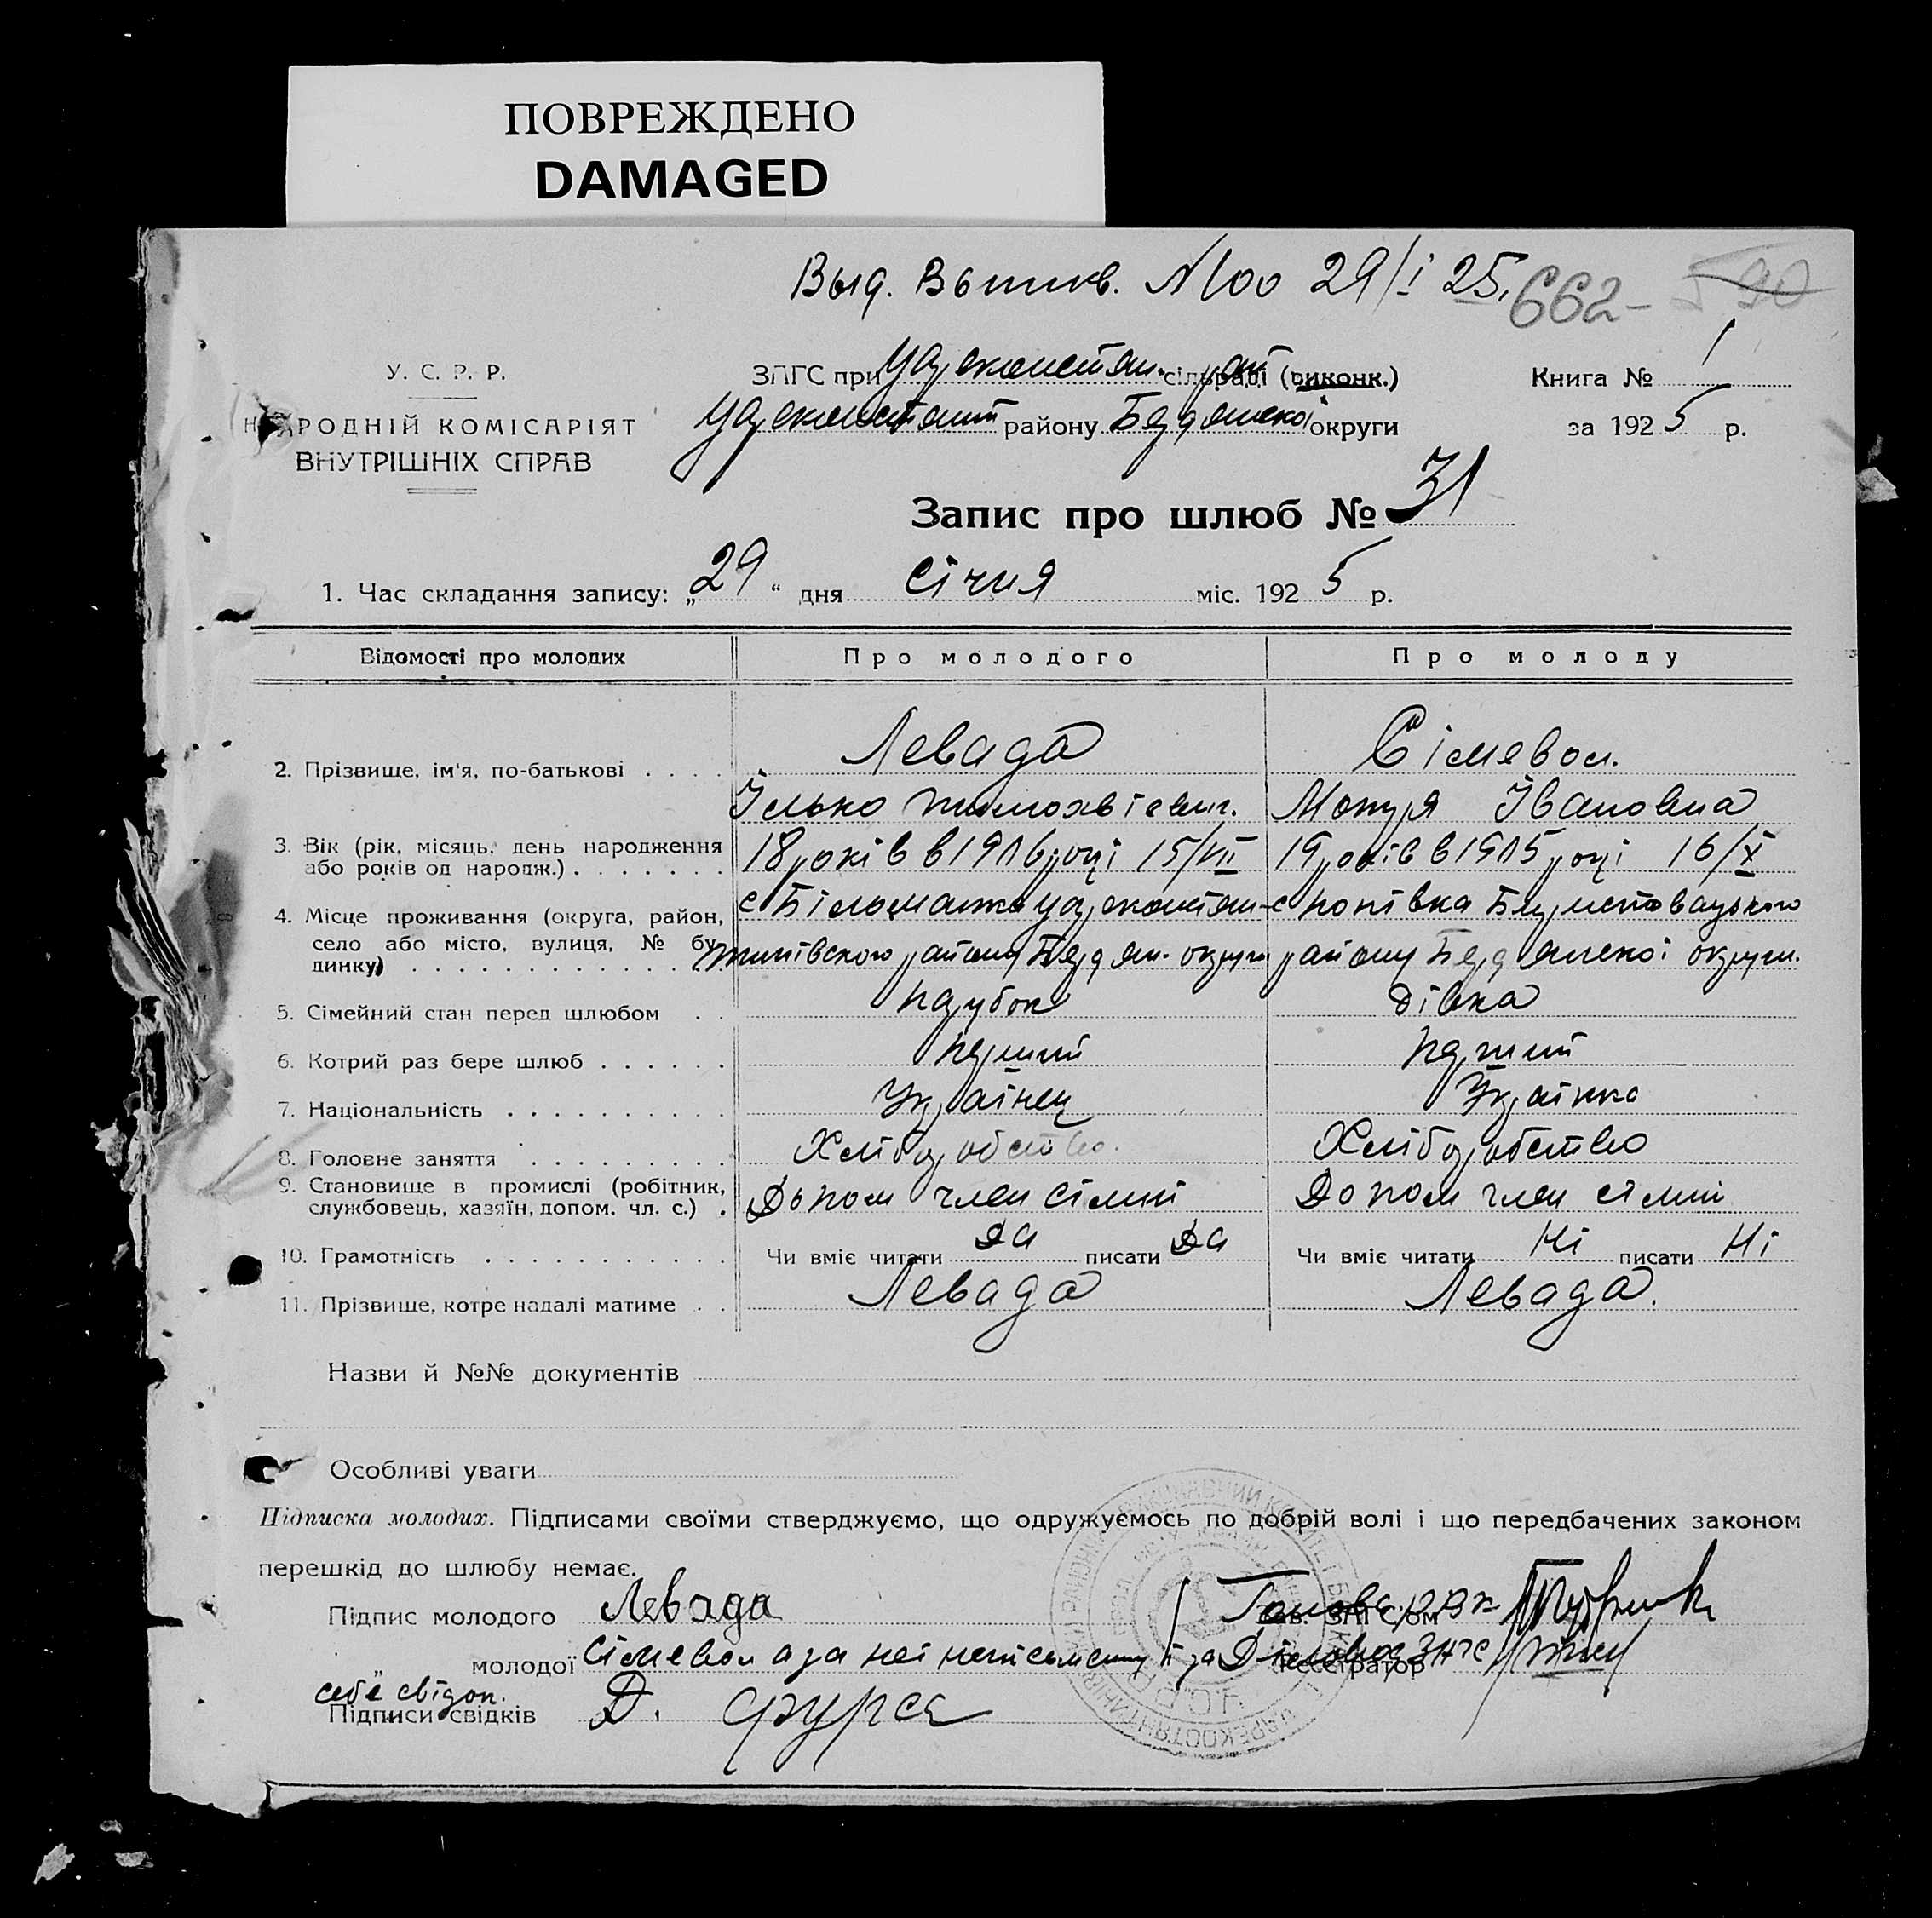 ПОВРЕЖДЕНО
DAMAGED
Выд. Вытяв. №100 29/I 25.
662- 590
У. С. Р. Р.
НАРОДНІЙ КОМІСАРІЯТ
ВНУТРІШНІХ СПРАВ
ЗАГС при Цареконстан. рай сільраді (виконк.)
району Бердянської округи
Книга № 1
за 1925 р.
Запис про шлюб № 31
1. Час складання запису: „29“ дня січня міс. 1925 р.
Відомості про молодих Про молодого Про молоду
2. Прізвище, ім'я, по-батькові . . . . Левада
Ілько Івановна
3. Вік (рік, місяць, день народження або років од народж.) . . . . . . . 18 років в 1916 році 15/VII 19 років в 1915 році 16/X
4. Місце проживання (округа, район, село або місто, вулиця, № будинку) . . . . . . . . . . . с Більманка Цареконстан-тинівского району Бердян. округи с Попівка району Бердянської округи.
5. Сімейний стан перед шлюбом . . парубок дівка
6. Котрий раз бере шлюб . . . . . . перший перший
7. Національність . . . . . . . . . . Українец Українка
8. Головне заняття . . . . . . . . . Хліборобство. Хліборобство
9. Становище в промислі (робітник, службовець, хазяїн, допом. чл. с.) . Допом член сімии Допом член сімии
10. Грамотність . . . . . . . . . . . Чи вміє читати да писати да Чи вміє читати Ні писати Ні
11. Прізвище, котре надалі матиме . . Левада Левада.
Назви й №№ документів
Особливі уваги
Підписка молодих. Підписами своїми стверджуємо, що одружуємось по добрій волі і що передбачених законом
перешкід до шлюбу немає.
Підпис молодого Левада Голова РВК
Зав. ЗАГС'ом
„ молодої а за неї неписьменну й за Діловод ЗАГС
Реєстратор
себе свідоп.
Підписи свідків Д. Фурса